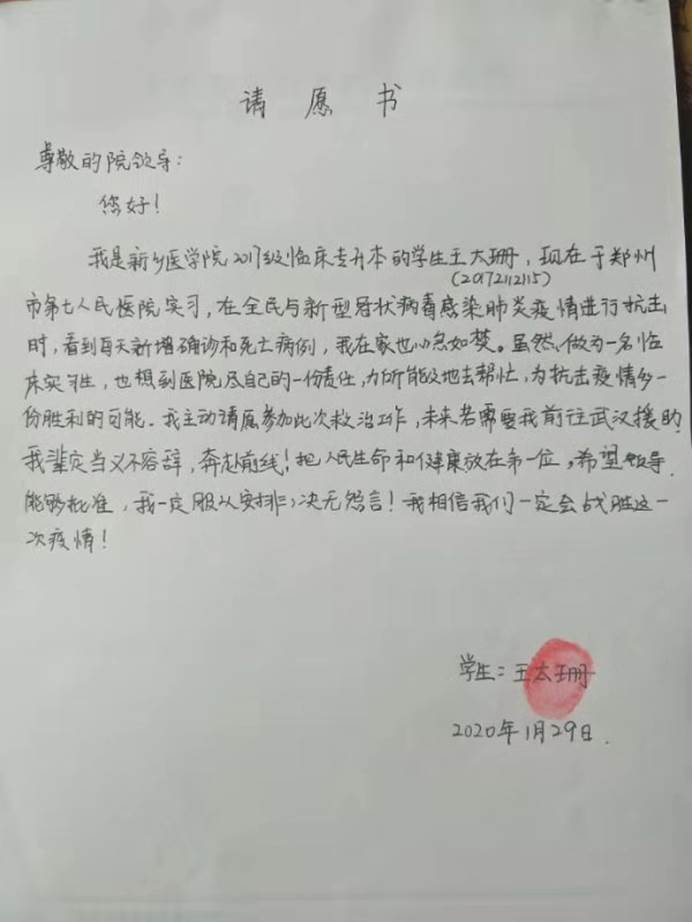 请愿书
尊敬的院领导:
您好!
我是新乡医学院2017级临床专升本的学生王太珊,现在于郑州
(20172112115)
市第七人民医院实习,在全民与新型冠状病毒感染肺炎疫情进行抗击
时,看到每天新增确诊和死亡病例,我在家也心急如焚。虽然,做为一名临
床实习生,也想到医院尽自己的一份责任,力所能及地去帮忙,为抗击疫情多一
份胜利的可能。我主动请愿参加此次救治工作,未来若需要我前往武汉援助,
我辈定当义不容辞,奔赴前线!把人民生命和健康放在第一位,希望领导
能够批准,我一定服从安排,决无怨言!我相信我们一定会战胜这一
次疫情!
学生:王太珊
2020年1月29日.